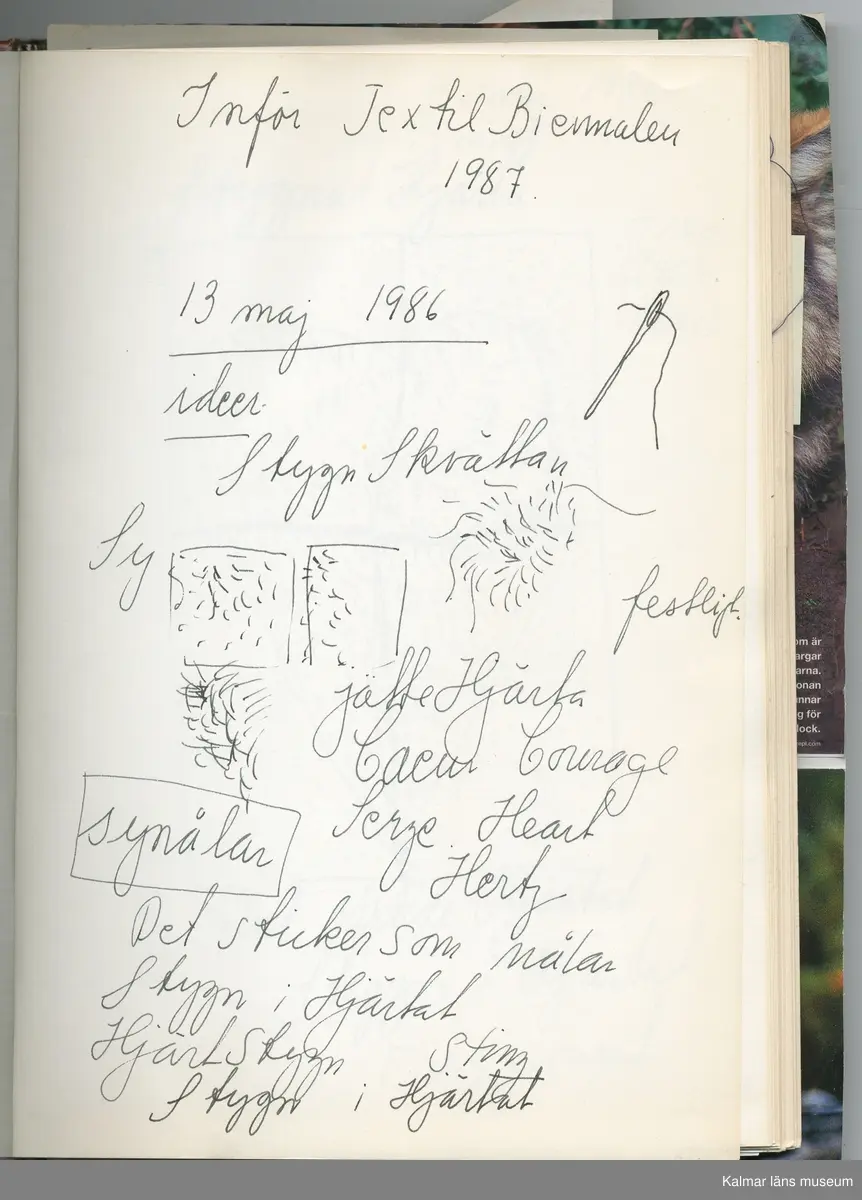 Inför Textil Biennalen
1987.
13 maj 1986
ideer.
Stygn Skvättan
Sy
festligt.
jätte Hjärta
Coeur Courage
Serze Heart
Hertz
synålar
Det sticker som nålar
Stygn i Hjärtat
HjärtStygn Sting
Stygn i Hjärtat
om är
argar
arna.
onan
nnar
g för
lock.
ept.com
Kalmar läns museum